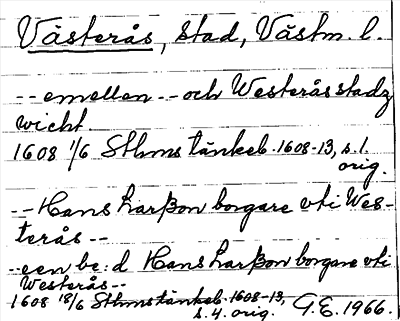 Västerås, stad, Västm. l.
-- emellen -- och Westerås stadz
wicht.
1608 1/6 Sthms tänkeb. 1608-13, s. 1.
orig.
-- Hans Larßon borgare vti Wes-
terås --
-- een be:d Hans Larßon borgare vti
Westerås --
1608 18/6 Sthms tänkeb. 1608-13,
s. 4. orig. G.E. 1966.